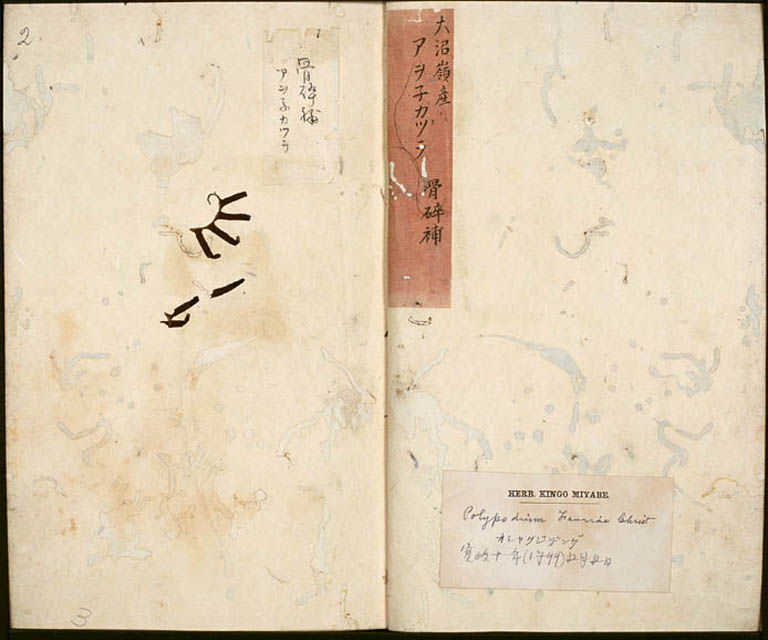 2
骨碎補
アヲネカツラ
大沼嶺産
アヲ子カヅラ
骨碎補
HERB. KINGO MIYABE.
Polypodium Fauriae Christ
オシャグジデンダ
寛政十一年(1799)五月五日
3